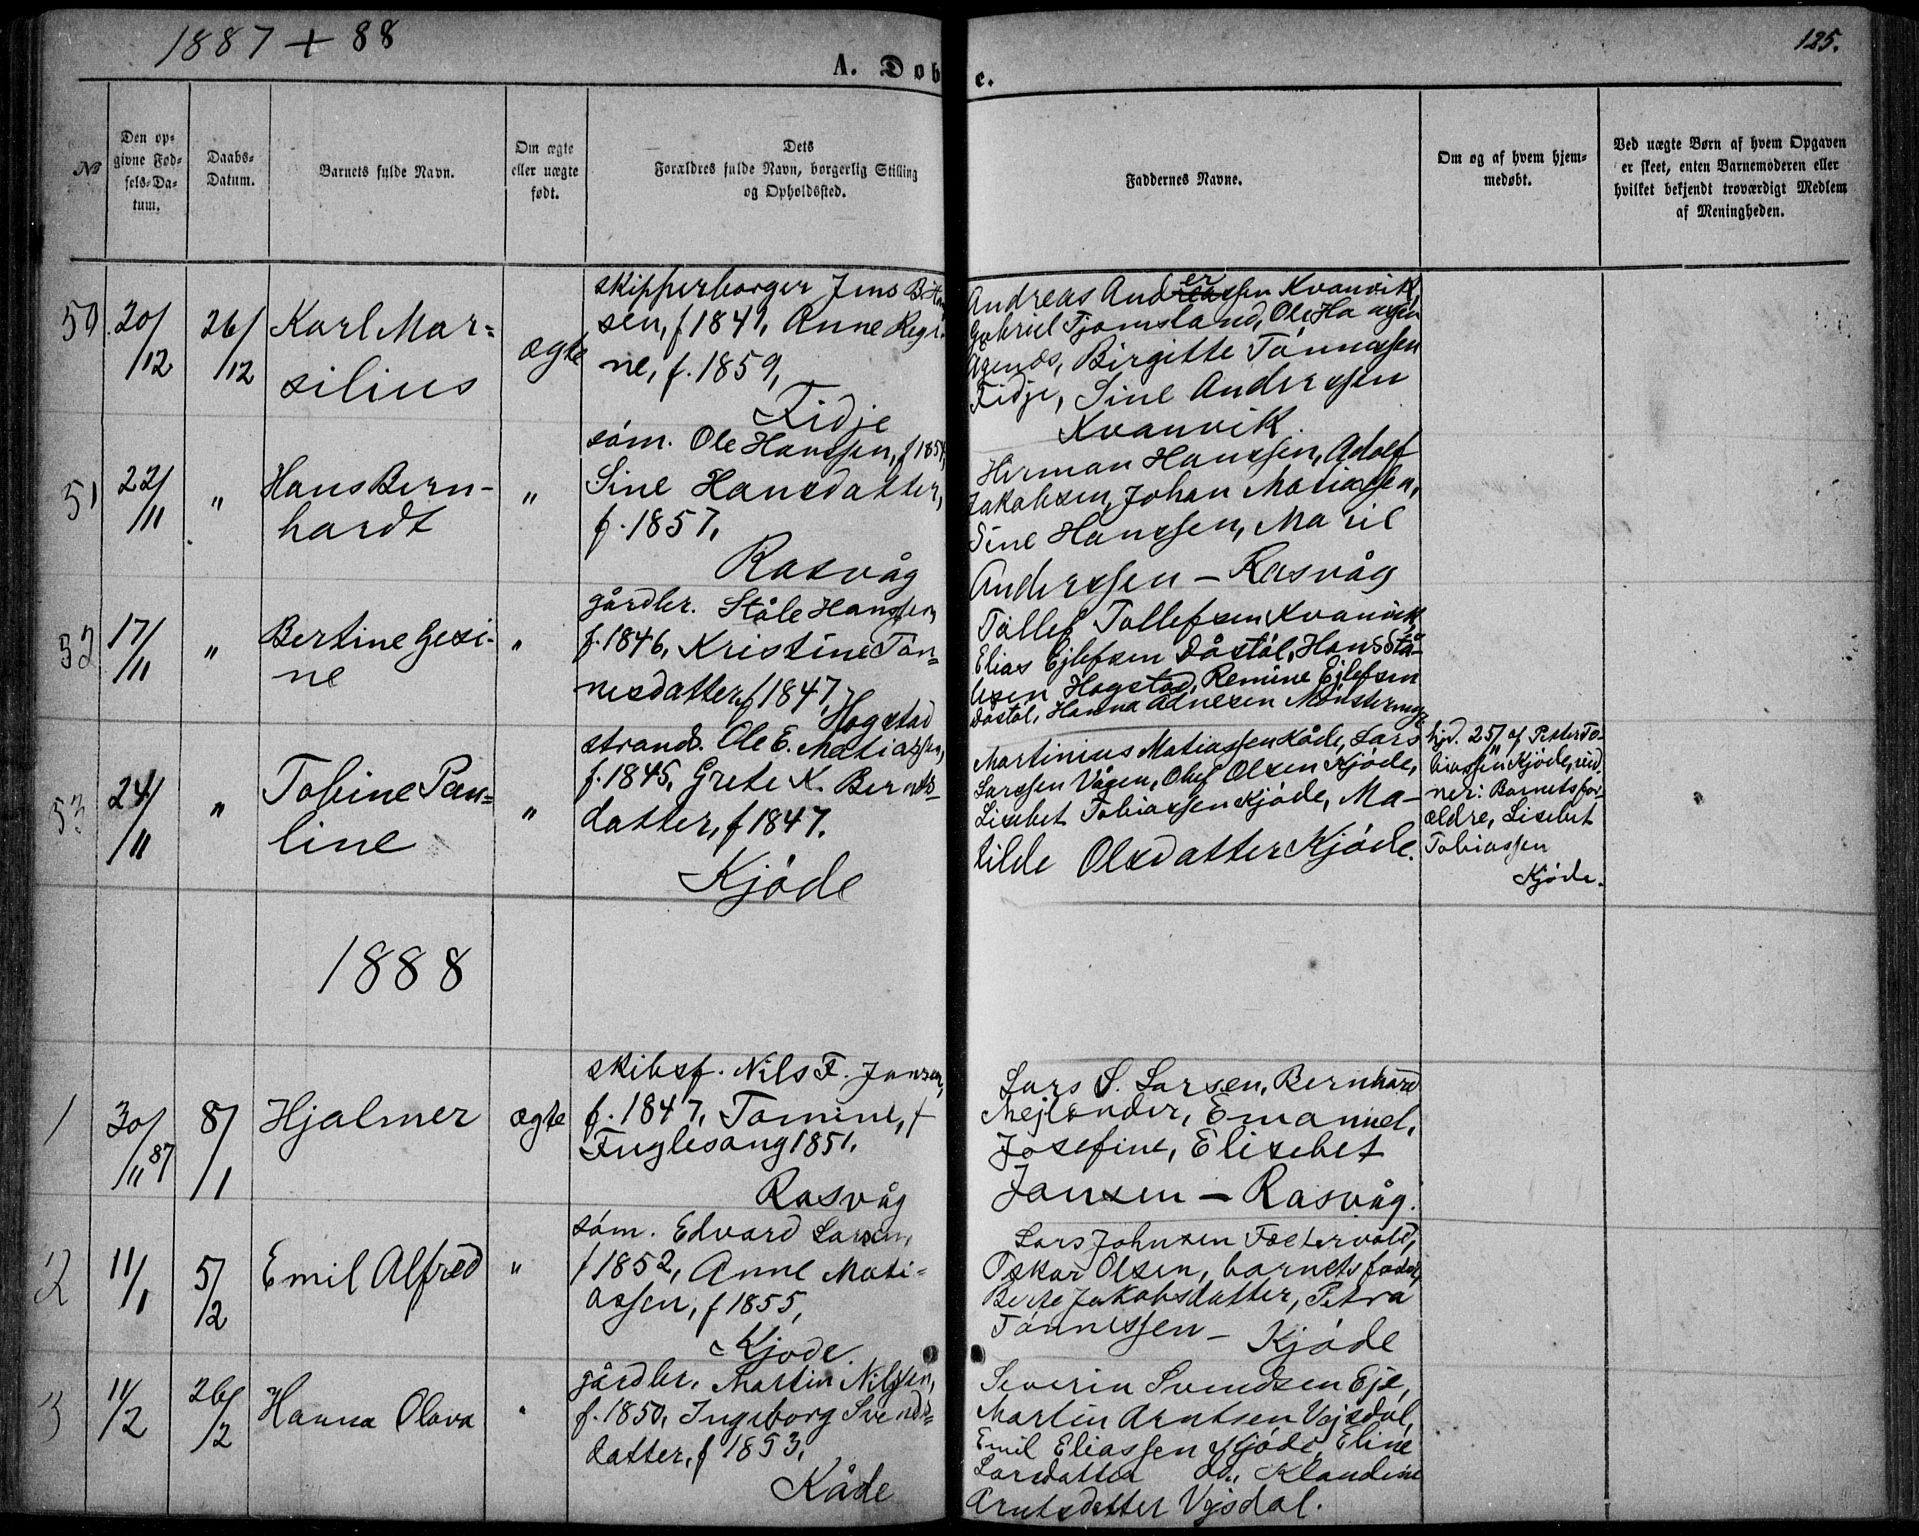 1887 + 88
125.
A. Døbte.
No
Den op-
givne Fød-
sels-Da-
tum.
Daabs-
Datum.
Barnets fulde Navn.
Om ægte
eller uægte
født.
Dets
Forældres fulde Navn, borgerlig Stilling
og Opholdssted.
Faddernes Navne.
Om og af hvem hjem-
medøbt.
Ved uægte Børn af hvem Opgaven
er skeet, enten Barnemoderen eller
hvilket bekjendt troværdigt Medlem
af Menigheden.
50 20/12 26/12
Karl Mar-
silius
ægte
skipperborger Jens B. Han
sen, f 1841, Anne Regi-
ne, f. 1859,
Fidje
Andreas Anderssen Kvanvik
Gabriel Tjomsland, Ole Haagen
Agenæs, Birgitte Tønnessen
Fidje, Sine Anderssen
Kvanvik.
51 22/11 "
Hans Bern-
hardt
"
søm. Ole Hanssen, f 1854,
Sine Hansdatter,
f. 1857,
Rasvåg
Herman Hanssen, Adolf
Jakobsen, Johan Matiassen,
Sine Hanssen, Maril
Anderssen – Rasvåg
52 17/11 "
Bertine Gesi-
ne
"
gårdbr. Ståle Hanssen
f. 1846, Kristine Tøn-
nesdatter f 1847,
Hogstad
Tollef Tollefsen Kvanvik
Elias Ejlefsen Dåstøl, Hans Stå-
lesen Hogstad, Remine Ejlefsen
Dåstøl, Hanna Adnesen Mønstermyr
53 24/11 "
Tobine Pau-
line
"
strands. Ole E. Matiassen,
f. 1845, Grete K. Bernts-
datter, f 1847.
Kjøde
Martinius Matiassen Kåde, Lars
Larssen Vågen, Oluf Olsen Kjøde,
Lisebet Tobiassen Kjøde, Ma-
tilde Olsdatter Kjøde.
hjd. 25/11 af Peder To-
biassen Kjøde, vid-
ner: Barnets for-
ældre, Lisebet
Tobiassen
Kjøde.
1888
1 30/11 87 8/1
Hjalmer
ægte
skibsf. Nils F. Jansen,
f. 1847, Tomine, f
Fuglesang 1851.
Rasvåg
Lars S. Larsen, Bernhard
Mejlænder, Emanuel,
Josefine, Elisebet
Jansen – Rasvåg.
2 11/1 5/2
Emil Alfred
"
søm. Edvard Larsen,
f 1852, Anne Mati-
assen, f 1855,
Kjøde.
Lars Johnsen Fostervold,
Oskar Olsen, barnets fader,
Berte Jakobsdatter, Petra
Tønnessen – Kjøde
3 11/2 26/2
Hanna Olava
"
gårdbr. Martin Nilssen,
f. 1850, Ingeborg Svends-
datter, f 1853,
Kåde
Severin Svendsen Eje,
Martin Arntsen Vejsdal,
Emil Eliassen Kjøde, Eline
Larsdatter do., Klaudine
Arntsdatter Vejsdal.